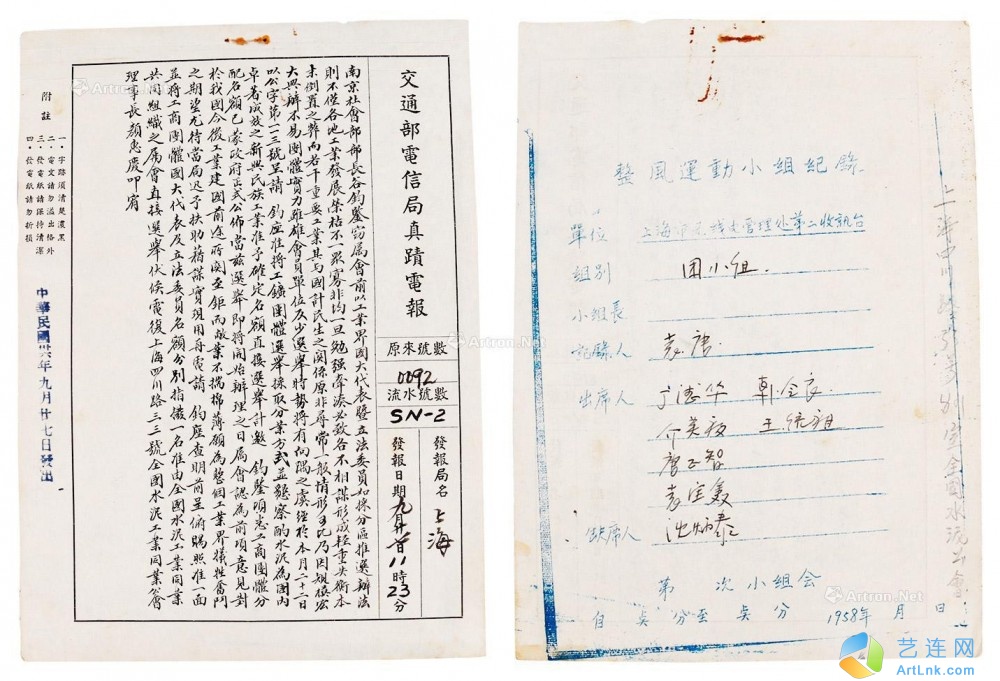 交通部電信局真蹟電報
原來號數
0092
流水號數
SN-2
發報局名 上海
發報日期 九月 11時23分
南京社會部部長谷鈞鑒竊属會前以工業界國大代表暨立法委員如採分區推選辦法
則不僅各地工業發展榮枯不一眾寡非均一旦勉强牽湊必致各不相謀形成輕重失衡本
末倒置之弊而若干重要工業其与國計民生之関係原非尋常一般情形可比乃因規模宏
大興辦不易團體實力雖雄會員單位反少選舉時勢將有向隅之虞經於本月二十三日
以公字第一二三號呈請 鈞座准將工鑛團體選舉採取分業方式並懇察酌水泥為國内
卓著成效之新興民族工業准予確定名額直接選舉計數 鈞鑒頃悉工商團體分
配名額已蒙政府正式公佈當兹選舉即將開始辦理之日属會認為前項意見對
於我國今後工業建國前途所関至鉅而敝業不揣棉薄願為整個工業界犧牲奮鬥
之期望尤待當局迅予扶助藉謀實現用再電請 鈞座查明前呈俯賜照准一面
並將工商團體國大代表及立法委員名額分別指一名准由全國水泥工業同業
共同組織之属會直接選舉伏候電復上海四川路三三號全國水泥工業同業公會
理事長顏惠慶叩宥
附註
一・字跡須清楚濃黑
二・電文請勿溢出格外
三・發電紙請保持清潔
四・發電紙請勿折損
中華民國卅六年九月廿七日發出
整風運動小组紀錄
單位 上海市无线电管理处第二收訊台
组别 团小组.
小组長
記録人 袁唐
出席人 丁德华 韩金良
介英夜 王統祖
唐正智
袁宝轰
缺席人 沈炳泰
第 次小组会
自 点 分至 点 分 1958年 月 日
上海四川路 全國水泥公會
Artron.Net
Artron.Net
Artron.Net
Artron.Net
艺连网
ArtLnk.com